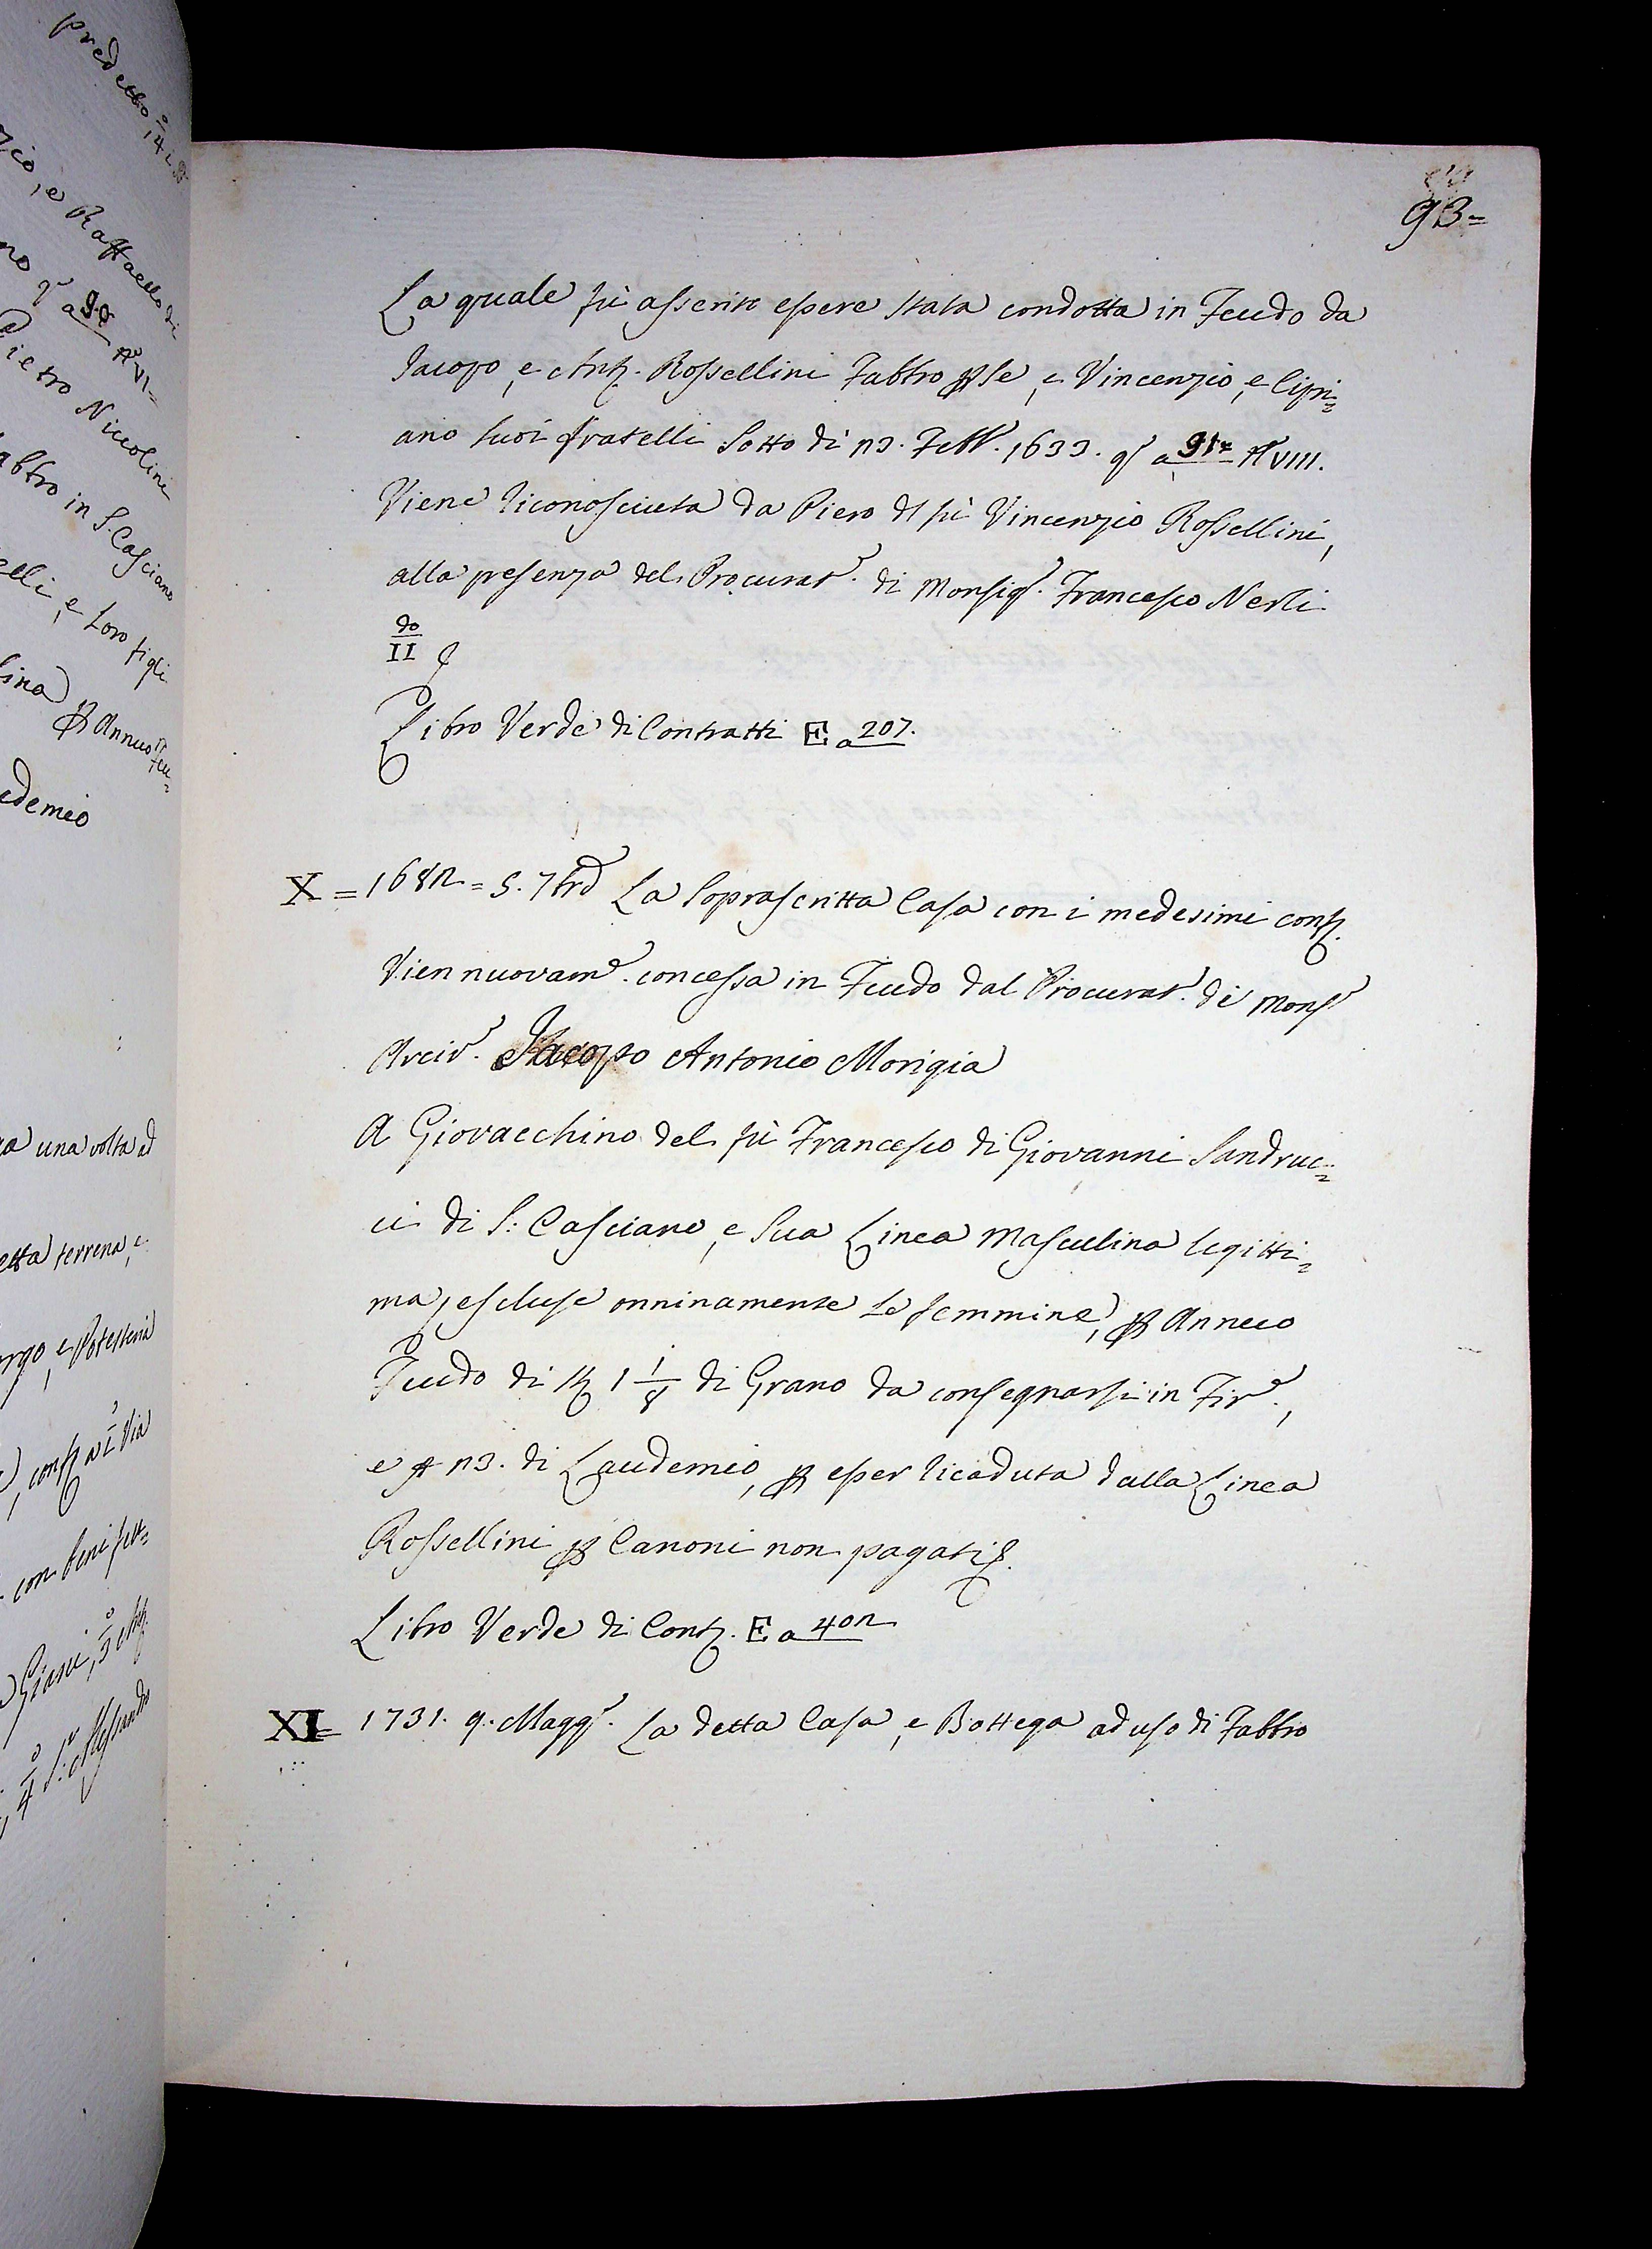 predetto, 4°
e Raffaello di
90
Pietro Niccolini
Fabbro in S. Casciano
elli, e Loro figli
lina) p Annuo
edemio
a una volta ad
etta terrena, e
orgo, e Potesteria
conf. a 1° Via
con beni
Giani, 3°
4°
93=
La quale fù asserito essere Stata condotta in Feudo da
Jacopo, e Ant. Rossellini Fabbro p Se, e Vincenzio, e Cipri=
ano Suoi fratelli Sotto dì 23. Febb. 1633. q.r a 91 N VIII.
Viene riconosciuta da Piero dl fù Vincenzio Rossellini,
alla presenza del Procurat.r di Monsig.r Francesco Nerli
II do
Libro Verde di Contratti E a 207.
X = 1682 = 5. 7bre La Soprascritta Casa con i medesimi conf.
Vien nuovam.e concessa in Feudo dal Procurat.r di Mons.r
Arciv.o Jacopo Antonio Morigia
A Giovacchino del fù Francesco di Giovanni Sandruc=
ci di S. Casciano, e Sua Linea Masculina legitti=
ma, escluse onninamente le femmine, p Annuo
Feudo di St. 1 1/8 di Grano da consegnarsi in Fir.e,
e 23. di Laudemio, p esser ricaduta dalla Linea
Rossellini p Canoni non pagati.
Libro Verde di Cont. E a 402
XI= 1731. 9. Magg.o La detta Casa, e Bottega ad uso di Fabbro